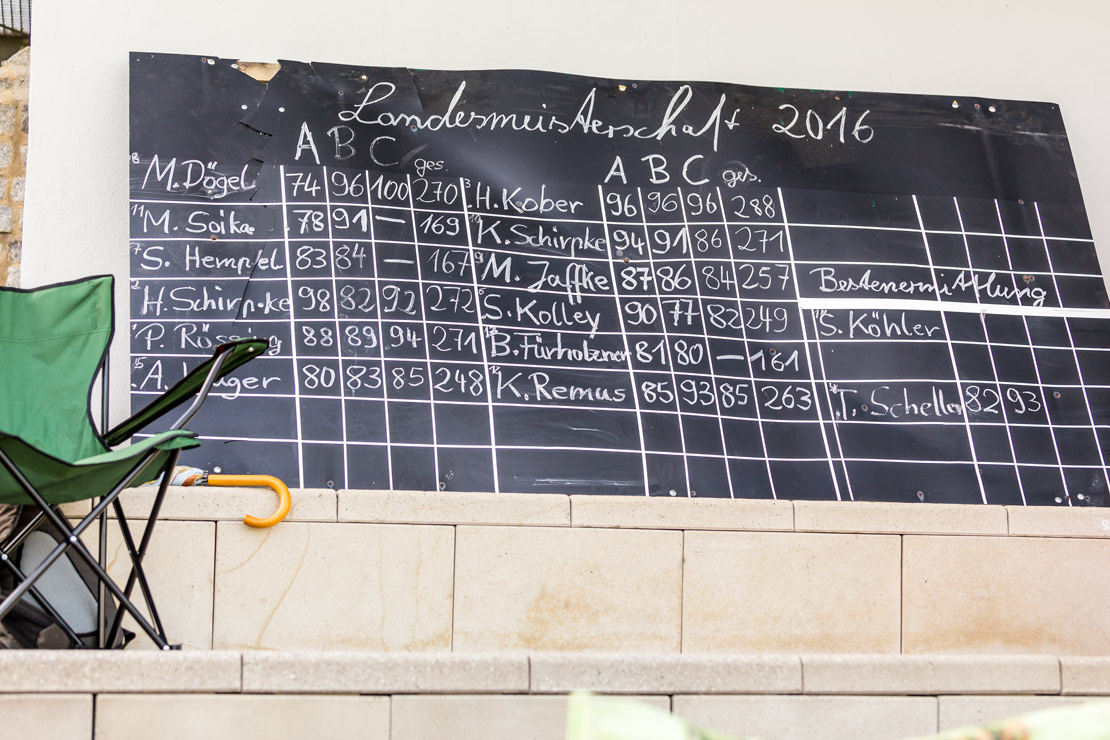 Landesmeisterschaft 2016
A B C ges.
8 M. Dögel 74 96 100 270
11 M. Soika 78 91 — 169
7 S. Hempel 83 84 — 167
2 H. Schirpke 98 82 92 272
1 P. 88 89 94 271
15 A. 80 83 85 248
A B C ges.
3 H. Kober 96 96 96 288
K. Schirpke 94 91 86 271
9 M. Jaffke 87 86 84 257
S. Kolley 90 77 82 249
B. Fürholzner 81 80 — 161
12 K. Remus 85 93 85 263
Bestenermittlung
S. Köhler
14 T. Scheller 82 93